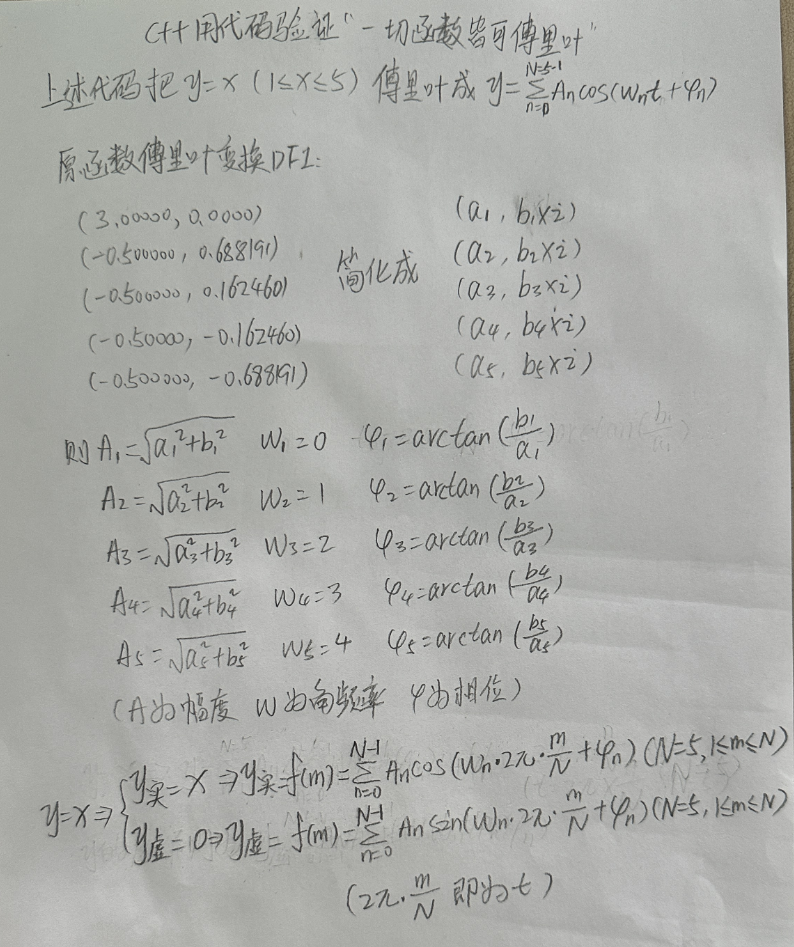 C++用代码验证"一切函数皆可傅里叶"
上述代码把 y=x (1≤x≤5) 傅里叶成 y=∑_{n=0}^{N=5-1} An cos(Wnt+φn)
原函数傅里叶变换DFT:
(3.00000, 0.0000)
(-0.500000, 0.688191)
(-0.500000, 0.162460)
(-0.50000, -0.162460)
(-0.500000, -0.688191)
简化成
(a1, b1×i)
(a2, b2×i)
(a3, b3×i)
(a4, b4×i)
(a5, b5×i)
则 A1=√(a1²+b1²) W1=0 φ1=arctan(b1/a1)
A2=√(a2²+b2²) W2=1 φ2=arctan(b2/a2)
A3=√(a3²+b3²) W3=2 φ3=arctan(b3/a3)
A4=√(a4²+b4²) W4=3 φ4=arctan(b4/a4)
A5=√(a5²+b5²) W5=4 φ5=arctan(b5/a5)
(A为幅度 W为角频率 φ为相位)
y=x⇒{y实=x⇒y实=f(m)=∑_{n=0}^{N-1} An cos(Wn·2π·m/N+φn) (N=5, 1≤m≤N)
y虚=0⇒y虚=f(m)=∑_{n=0}^{N-1} An sin(Wn·2π·m/N+φn) (N=5, 1≤m≤N)
(2π·m/N 即为t)